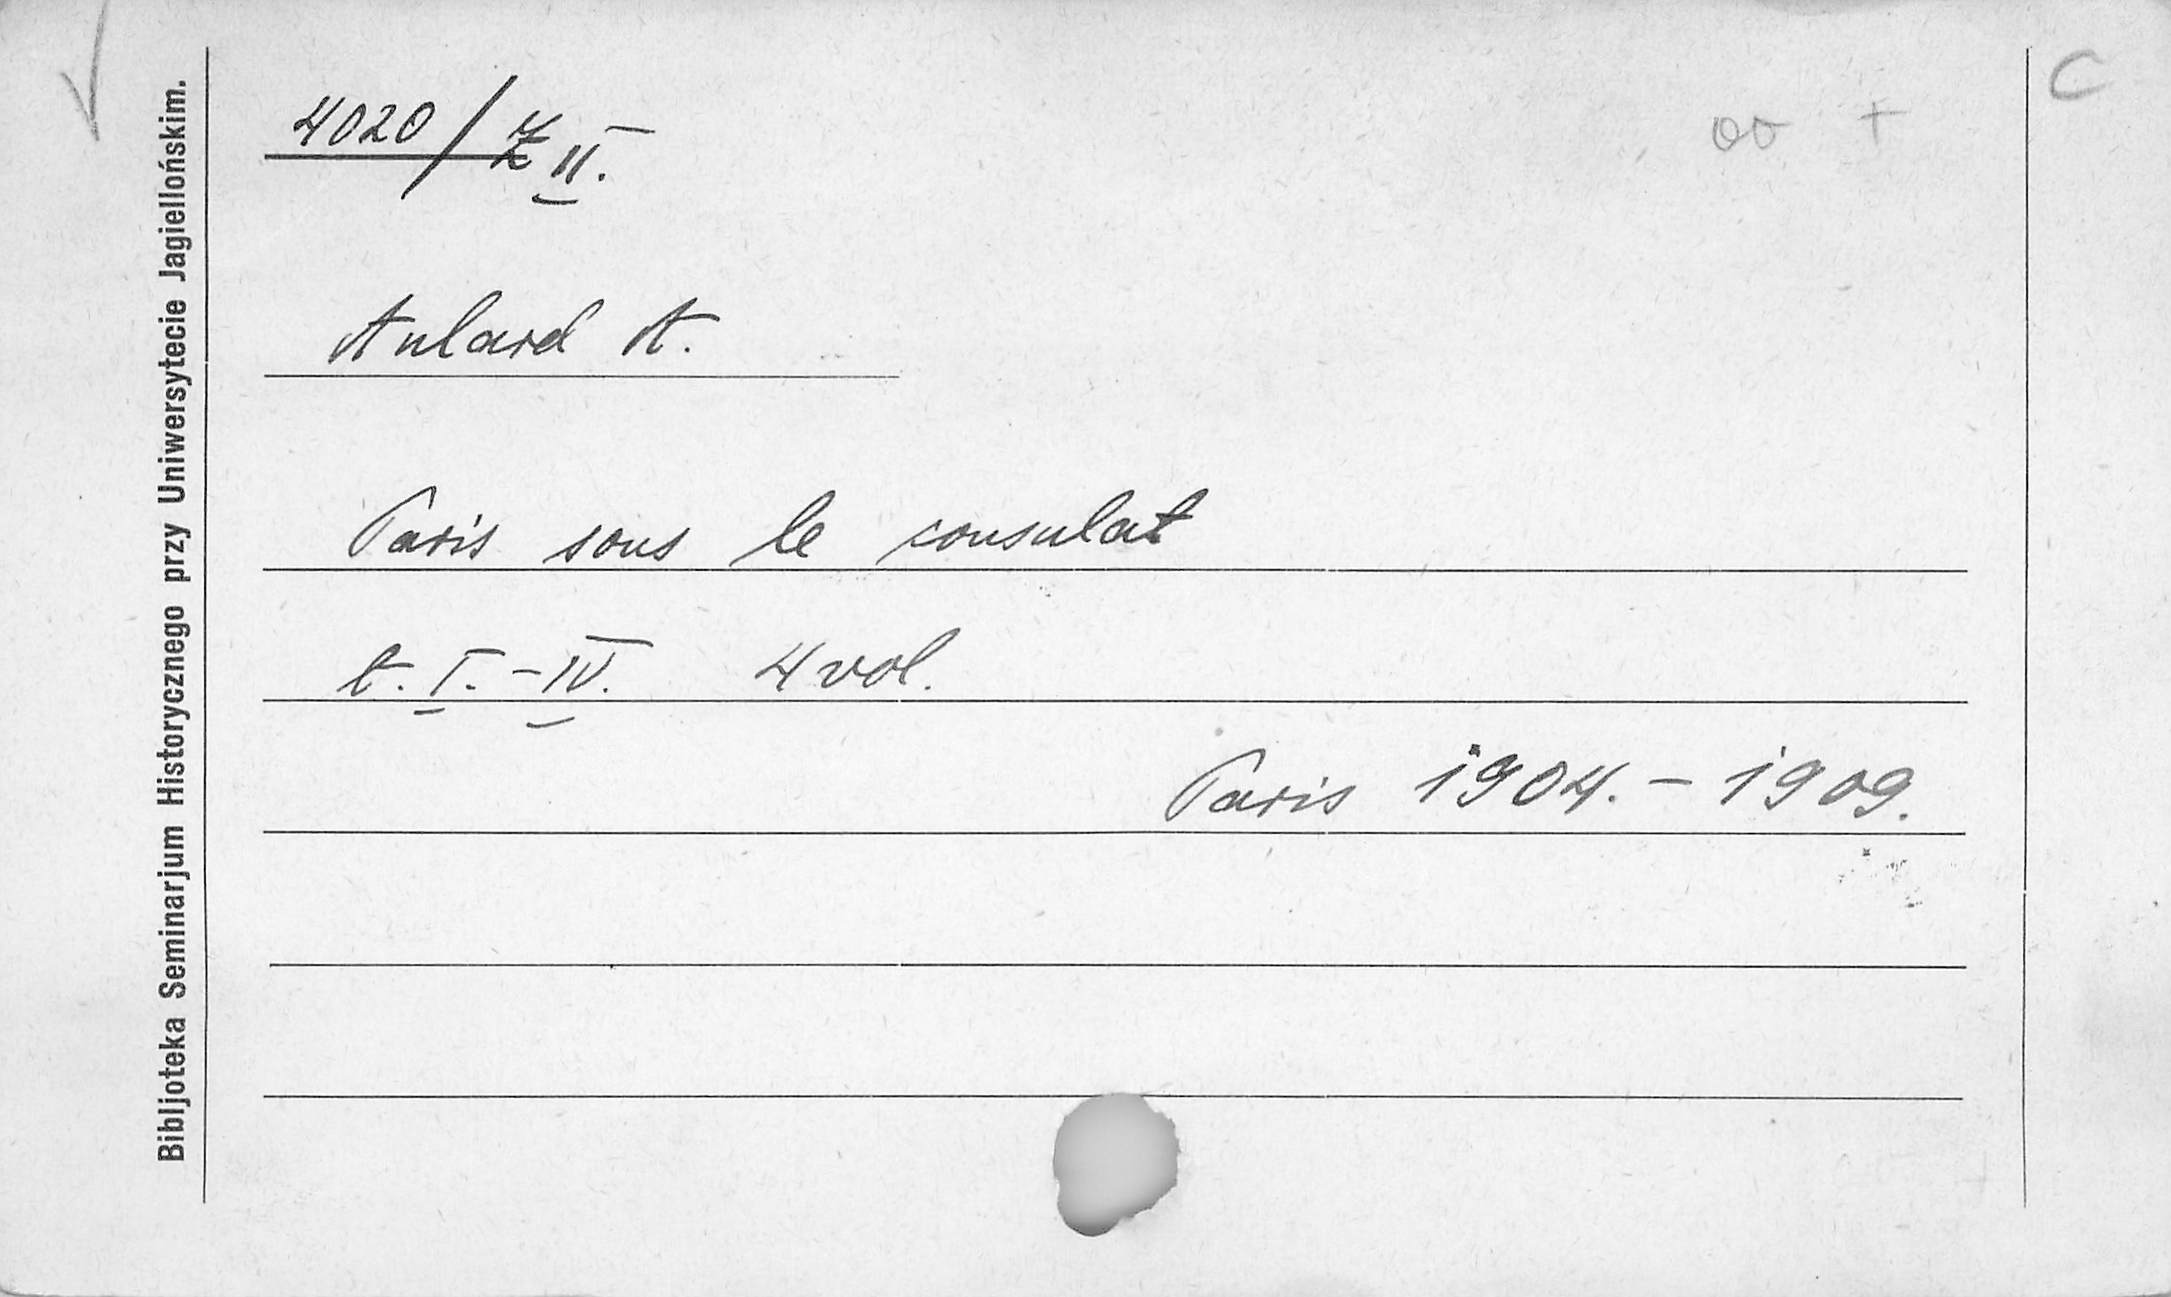 Bibljoteka Seminarjum Historycznego przy Uniwersytecie Jagiellońskim.
4020/Z II.
oo +
C
Aulard A.
Paris sous le consulat
t. I. - IV. 4 vol.
Paris 1904. - 1909.